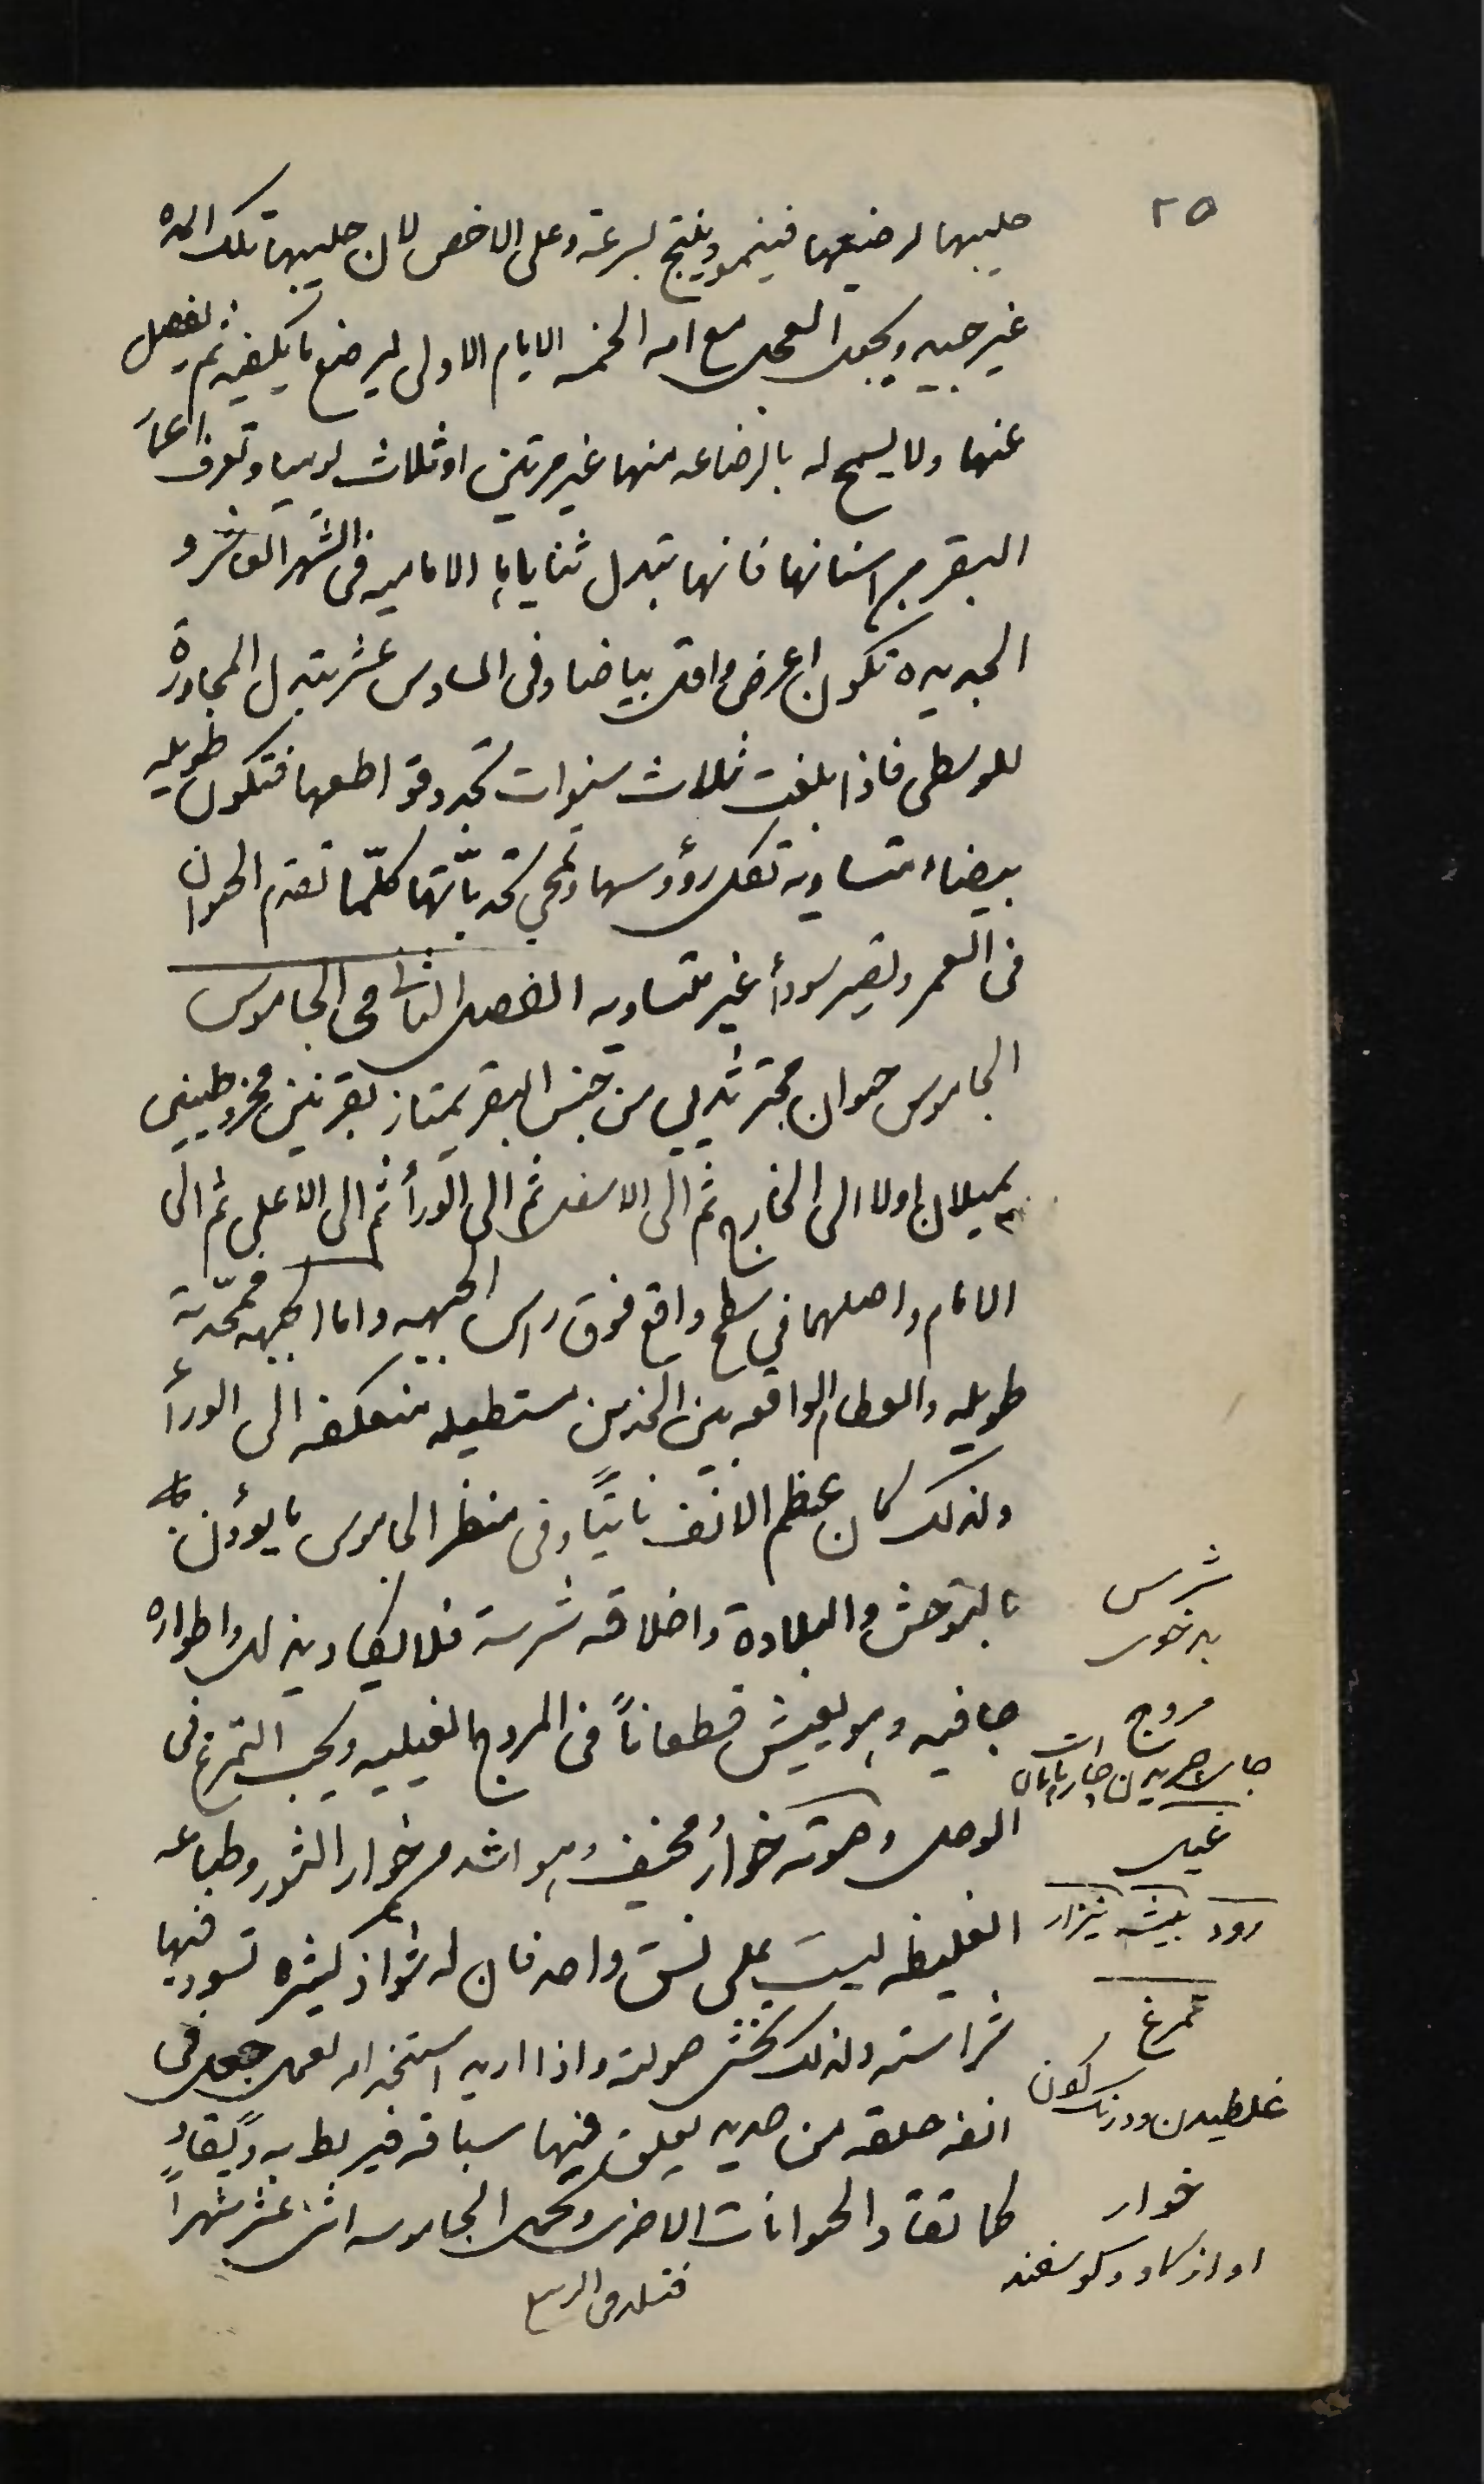 ٢٥
حليبها لرضيعها فينمو وينتج بسرعة وعلى الاخص لان حليبها تلك المدة
غير جيد ويجعل العجل مع امه الخمسه الايام الاولى ليرضع ما يكفيه ثم يفصل
عنها ولا يسمح له بالرضاعه منها غير مرتين او ثلاث يوميا وتعرف اعمار
البقر من اسنانها فانها تبدل ثناياها الاماميه فى الشهر العاشر و
الجديده تكون اعرض واقل بياضا وفى السادس عشر تبدل المجاورة
للوسطى فاذا بلغت ثلاث سنوات تجدد قواطعها فتكون طويله
بيضاء متساويه تفل رؤوسها وتمحي تحدباتها كلّما تقدم الحيوان
فى العمر وتصير سودأ غير متساويه الفصل الثانى فى الجاموس
الجاموس حيوان مجتر ثديي من جنس البقر يمتاز بقرنين مخروطيين
يميلان اولا الى الخارج ثم الى الاسفل ثم الى الورأ ثم الى الاعلى ثم الى
الامام واصلهما في سطح واقع فوق راس الجبهه واما الجبهه فمحدّبة
طويله والعظام الواقعه بين الخدين مستطيله منعكفه الى الورأ
ولذلك كان عظم الانف ناتئاً وفى منظر الجاموس ما يؤذن
بالتوحش والبلادة واخلاقه شرسة فلا يكاد يذلل واطواره
جافيه وهو يعيش قطعاناً فى المروج الغيليه ويحب التمرغ فى
الوحل وصوته خوارٌ مخيف وهو اشد من خوار الثور وطباعه
الغليظه ليست على نسق واحد فان له شواذ كثيره تسود فيها
شراسته ولذلك تخشى صولته واذا اريد استخدامه لعمل جعل فى
انفه حلقه من حديد يعلق فيها سباقه فيربط به ويقاد
كما تقاد الحيوانات الاخرى وتحمل الجاموسه اثنى عشر شهراً
فتلد فى الربيع
شرس
بدخوى
مروج
غيل
رود بيشه نيزار
تمرغ
غلطيدن ودرنگ كون
خوار
اواز گاو و گوسفند